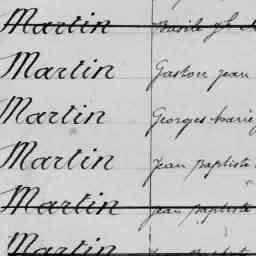 Martin Basile
Martin Gaston Jean
Martin Georges Marie
Martin Jean Baptiste
Martin Jean Baptiste
Martin Jean Baptiste